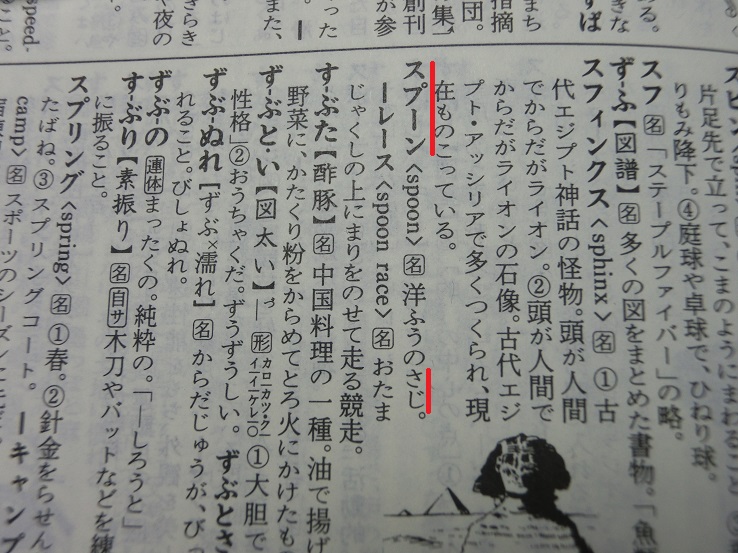 speed-
きらき
や夜の
った
が参
創刊
集、
団。
指摘
まち
ずば
きな
る。
片足先で立って、こまのようにまわること
りもみ降下。④庭球や卓球で、ひねり球。
スフ 名「ステープルファイバー」の略。
ず-ふ【図譜】名 多くの図をまとめた書物。「魚
スフィンクス〈sphinx〉名 ①古
代エジプト神話の怪物。頭が人間
でからだがライオン。②頭が人間で
からだがライオンの石像。古代エジ
プト・アッシリアで多くつくられ、現
在ものこっている。
スプーン〈spoon〉名 洋ふうのさじ。
ーレース〈spoon race〉名 おたま
じゃくしの上にまりをのせて走る競走。
す-ぶた【酢豚】名 中国料理の一種。油で揚げ
野菜に、かたくり粉をからめてとろ火にかけたも
ず-ぶと・い【図太い】―形 カロ・カツ・ク・イ・イ・ケレ・○ ①大胆で
性格」②おうちゃくだ。ずうずうしい。ずぶとさ
ずぶ-ぬれ【ずぶ×濡れ】名 からだじゅうが、び
れること。びしょぬれ。
ずぶの 連体 まったくの。純粋の。「―しろうと」
す-ぶり【素振り】名 自サ 木刀やバットなどを練
に振ること。
スプリング〈spring〉名 ①春。②針金をらせん
たばね。③スプリングコート。ーキャンプ
camp〉名 スポーツのシーズンに